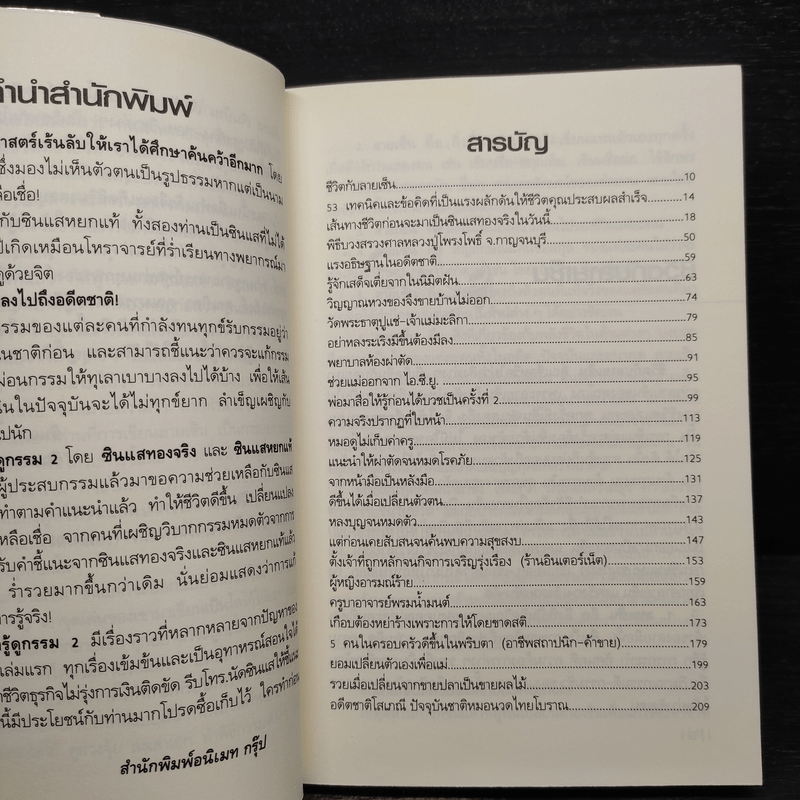 คำนำสำนักพิมพ์
าสตร์เร้นลับให้เราได้ศึกษาค้นคว้าอีกมาก โดย
ซึ่งมองไม่เห็นตัวตนเป็นรูปธรรมหากแต่เป็นนาม
ลือเชื่อ!
กับซินแสหยกแท้ ทั้งสองท่านเป็นซินแสที่ไม่ได้
ปิเกิดเหมือนโหราจารย์ที่ร่ำเรียนทางพยากรณ์มา
ดูด้วยจิต
ลงไปถึงอดีตชาติ!
รรมของแต่ละคนที่กำลังทนทุกข์รับกรรมอยู่ว่า
นชาติก่อน และสามารถชี้แนะว่าควรจะแก้กรรม
ผ่อนกรรมให้ทุเลาเบาบางลงไปได้บ้าง เพื่อให้เส้น
นในปัจจุบันจะได้ไม่ทุกข์ยาก ลำเข็ญเผชิญกับ
ปนัก
ดูกรรม 2 โดย ซินแสทองจริง และ ซินแสหยกแท้
ผู้ประสบกรรมแล้วมาขอความช่วยเหลือกับซินแส
ทำตามคำแนะนำแล้ว ทำให้ชีวิตดีขึ้น เปลี่ยนแปลง
หลือเชื่อ จากคนที่เผชิญวิบากกรรมหมดตัวจากการ
รับคำชี้แนะจากซินแสทองจริงและซินแสหยกแท้แล้ว
ร่ำรวยมากขึ้นกว่าเดิม นั่นย่อมแสดงว่าการแก้
การรู้จริง!
รู้ดูกรรม 2 มีเรื่องราวที่หลากหลายจากปัญหาของ
เล่มแรก ทุกเรื่องเข้มข้นและเป็นอุทาหรณ์สอนใจได้
ชีวิตธุรกิจไม่รุ่งการเงินติดขัด รีบโทร.นัดซินแสให้ชี้แนะ
นี้มีประโยชน์กับท่านมากโปรดซื้อเก็บไว้ ใครทำก่อน
สำนักพิมพ์อนิเมท กรุ๊ป
สารบัญ
ชีวิตกับลายเซ็น 10
53 เทคนิคและข้อคิดที่เป็นแรงผลักดันให้ชีวิตคุณประสบผลสำเร็จ 14
เส้นทางชีวิตก่อนจะมาเป็นซินแสทองจริงในวันนี้ 18
พิธีบวงสรวงศาลหลวงปู่โพรงโพธิ์ จ.กาญจนบุรี 50
แรงอธิษฐานในอดีตชาติ 59
รู้จักเสด็จเตี่ยจากในนิมิตฝัน 63
วิญญาณหวงของจึงขายบ้านไม่ออก 74
วัดพระธาตุปูแช่-เจ้าแม่มะลิกา 79
อย่าหลงระเริงมีขึ้นต้องมีลง 85
พยาบาลห้องผ่าตัด 91
ช่วยแม่ออกจาก ไอ.ซี.ยู. 95
พ่อมาสื่อให้รู้ก่อนได้บวชเป็นครั้งที่ 2 99
ความจริงปรากฏที่ใบหน้า 113
หมอดูไม่เก็บค่าครู 119
แนะนำให้ผ่าตัดจนหมดโรคภัย 125
จากหน้ามือเป็นหลังมือ 131
ดีขึ้นได้เมื่อเปลี่ยนตัวตน 137
หลงบุญจนหมดตัว 143
แต่ก่อนเคยสับสนจนค้นพบความสุขสงบ 147
ตั้งเจ้าที่ถูกหลักจนกิจการเจริญรุ่งเรือง (ร้านอินเตอร์เน็ต) 153
ผู้หญิงอารมณ์ร้าย 159
ครูบาอาจารย์พรมน้ำมนต์ 163
เกือบต้องหย่าร้างเพราะการให้โดยขาดสติ 173
5 คนในครอบครัวดีขึ้นในพริบตา (อาชีพสถาปนิก-ค้าขาย) 179
ยอมเปลี่ยนตัวเองเพื่อแม่ 199
รวยเมื่อเปลี่ยนจากขายปลาเป็นขายผลไม้ 203
อดีตชาติโสเภณี ปัจจุบันชาติหมอนวดไทยโบราณ 209